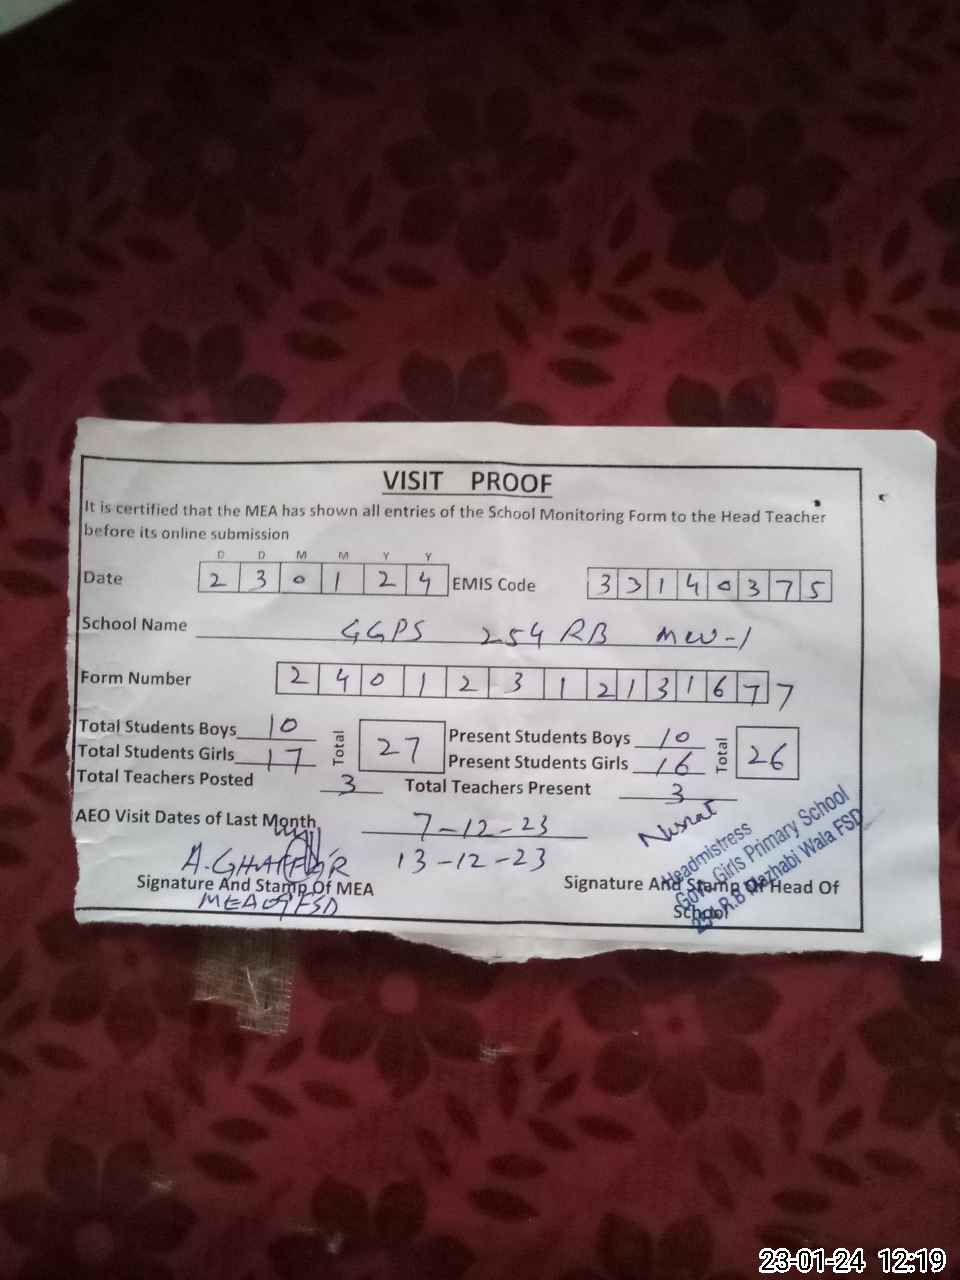 VISIT PROOF
It is certified that the MEA has shown all entries of the School Monitoring Form to the Head Teacher
before its online submission
D D M M Y Y
Date 2 3 0 1 2 4 EMIS Code 3 3 1 4 0 3 7 5
School Name GGPS 254 RB MW-1
Form Number 2 4 0 1 2 3 1 2 1 3 1 6 7 7
Total Students Boys 10 Total 27 Present Students Boys 10 Total 26
Total Students Girls 17 Present Students Girls 16
Total Teachers Posted 3 Total Teachers Present 3
AEO Visit Dates of Last Month 7-12-23
13-12-23
A.GHAFFAR
Signature And Stamp Of MEA
MEA FSD
Nusrat
Headmistress
Govt. Girls Primary School
R.B Mazhabi Wala FSD
Signature And Stamp Of Head Of
School
23-01-24 12:19